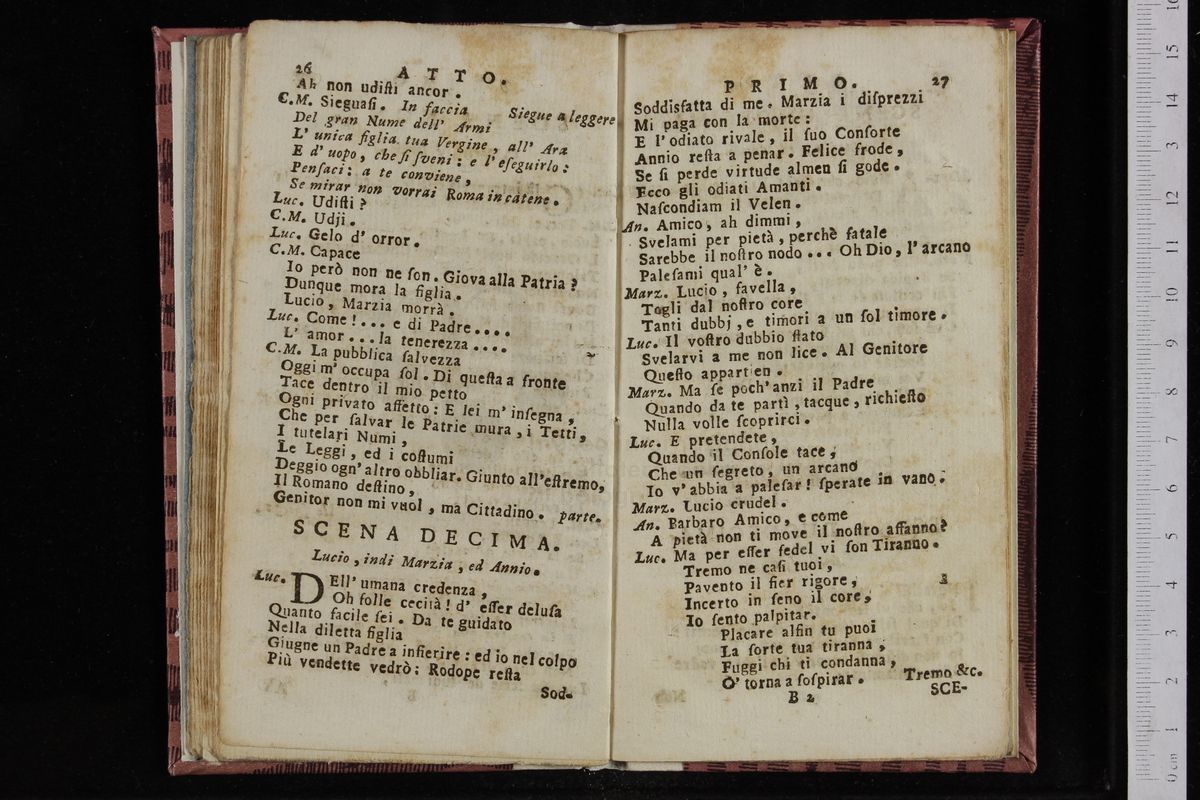 26 ATTO.
Ah non udiſti ancor.
C.M. Sieguaſi. In faccia Siegue a leggere
Del gran Nume dell' Armi
L' unica figlia tua Vergine, all' Ara
E d' uopo, che ſi ſveni: e l'eſeguirlo:
Penſaci: a te conviene,
Se mirar non vorrai Roma in catene.
Luc. Udiſti?
C.M. Udji.
Luc. Gelo d' orror.
C.M. Capace
Io però non ne ſon. Giova alla Patria?
Dunque mora la figlia.
Lucio, Marzia morrà.
Luc. Come!... e di Padre....
L' amor... la tenerezza....
C.M. La pubblica ſalvezza
Oggi m' occupa ſol. Di queſta a fronte
Tace dentro il mio petto
Ogni privato affetto: E lei m' inſegna,
Che per ſalvar le Patrie mura, i Tetti,
I tutelari Numi,
Le Leggi, ed i coſtumi
Deggio ogn' altro obbliar. Giunto all'eſtremo,
Il Romano deſtino,
Genitor non mi vuol, ma Cittadino. parte.
SCENA DECIMA.
Lucio, indi Marzia, ed Annio.
Luc. DEll' umana credenza,
Oh folle cecità! d' eſſer deluſa
Quanto facile ſei. Da te guidato
Nella diletta figlia
Giugne un Padre a infierire: ed io nel colpo
Più vendette vedrò: Rodope reſta
Sod-
PRIMO. 27
Soddisfatta di me. Marzia i diſprezzi
Mi paga con la morte:
E l'odiato rivale, il ſuo Conſorte
Annio reſta a penar. Felice frode,
Se ſi perde virtude almen ſi gode.
Ecco gli odiati Amanti.
Naſcondiam il Velen.
An. Amico, ah dimmi,
Svelami per pietà, perchè fatale
Sarebbe il noſtro nodo... Oh Dio, l' arcano
Paleſami qual' è.
Marz. Lucio, favella,
Togli dal noſtro core
Tanti dubbj, e timori a un ſol timore.
Luc. Il voſtro dubbio ſtato
Svelarvi a me non lice. Al Genitore
Queſto appartien.
Marz. Ma ſe poch' anzi il Padre
Quando da te partì, tacque, richieſto
Nulla volle ſcoprirci.
Luc. E pretendete,
Quando il Conſole tace,
Che un ſegreto, un arcano
Io v' abbia a paleſar! ſperate in vano.
Marz. Lucio crudel.
An. Barbaro Amico, e come
A pietà non ti move il noſtro affanno?
Luc. Ma per eſſer fedel vi ſon Tiranno.
Tremo ne caſi tuoi,
Pavento il fier rigore,
Incerto in ſeno il core,
Io ſento palpitar.
Placare alfin tu puoi
La ſorte tua tiranna,
Fuggi chi ti condanna,
O' torna a ſoſpirar. Tremo &c.
B 2 SCE-